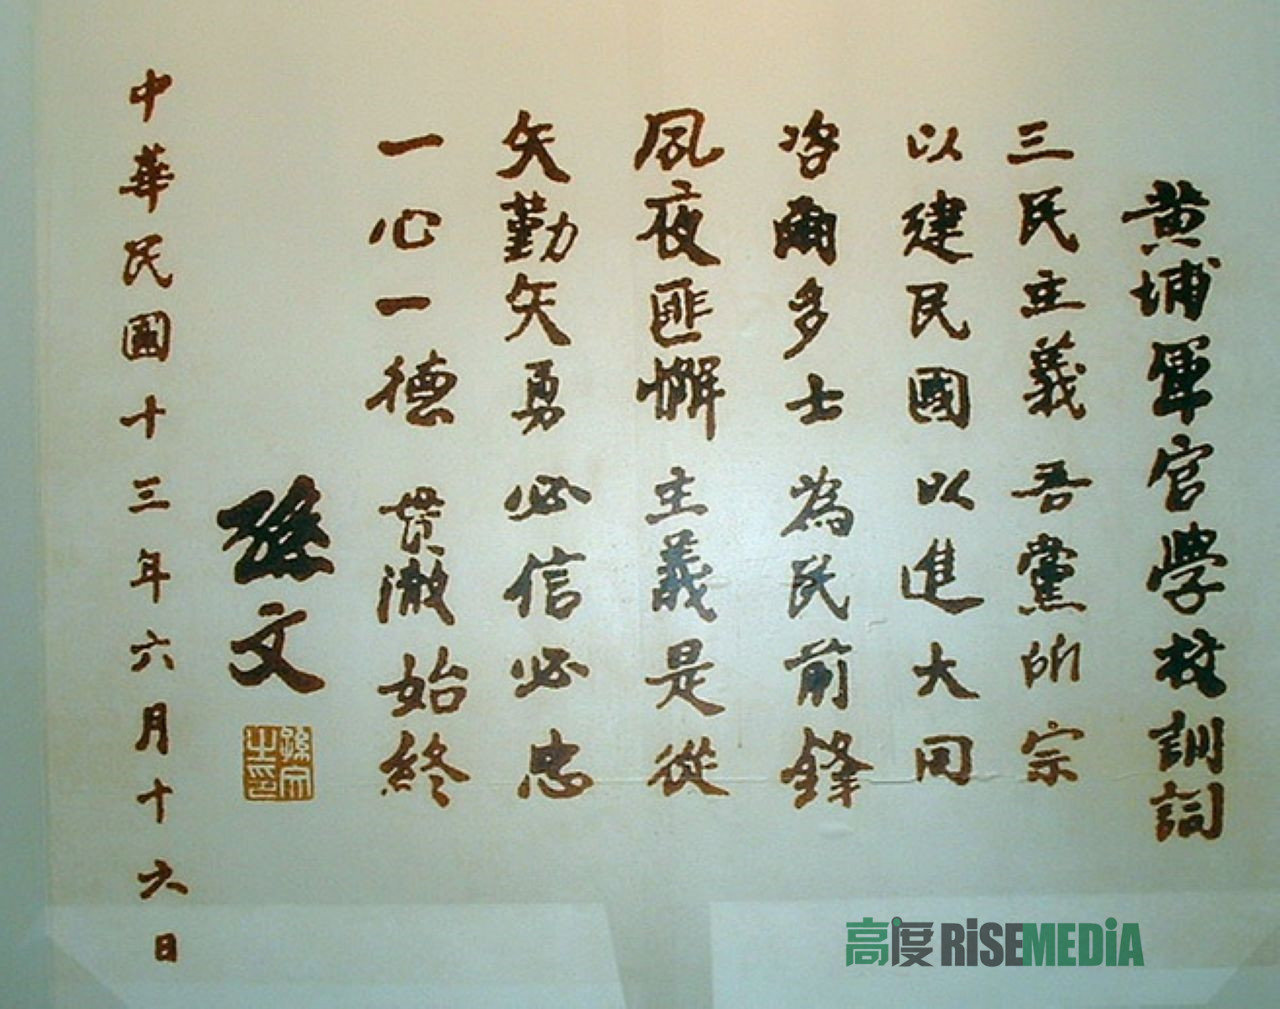 黃埔軍官學校訓詞
三民主義 吾黨所宗
以建民國 以進大同
咨爾多士 為民前鋒
夙夜匪懈 主義是從
矢勤矢勇 必信必忠
一心一德 貫澈始終
孫文
孫文之印
中華民國十三年六月十六日
高度 RiSEMEDiA